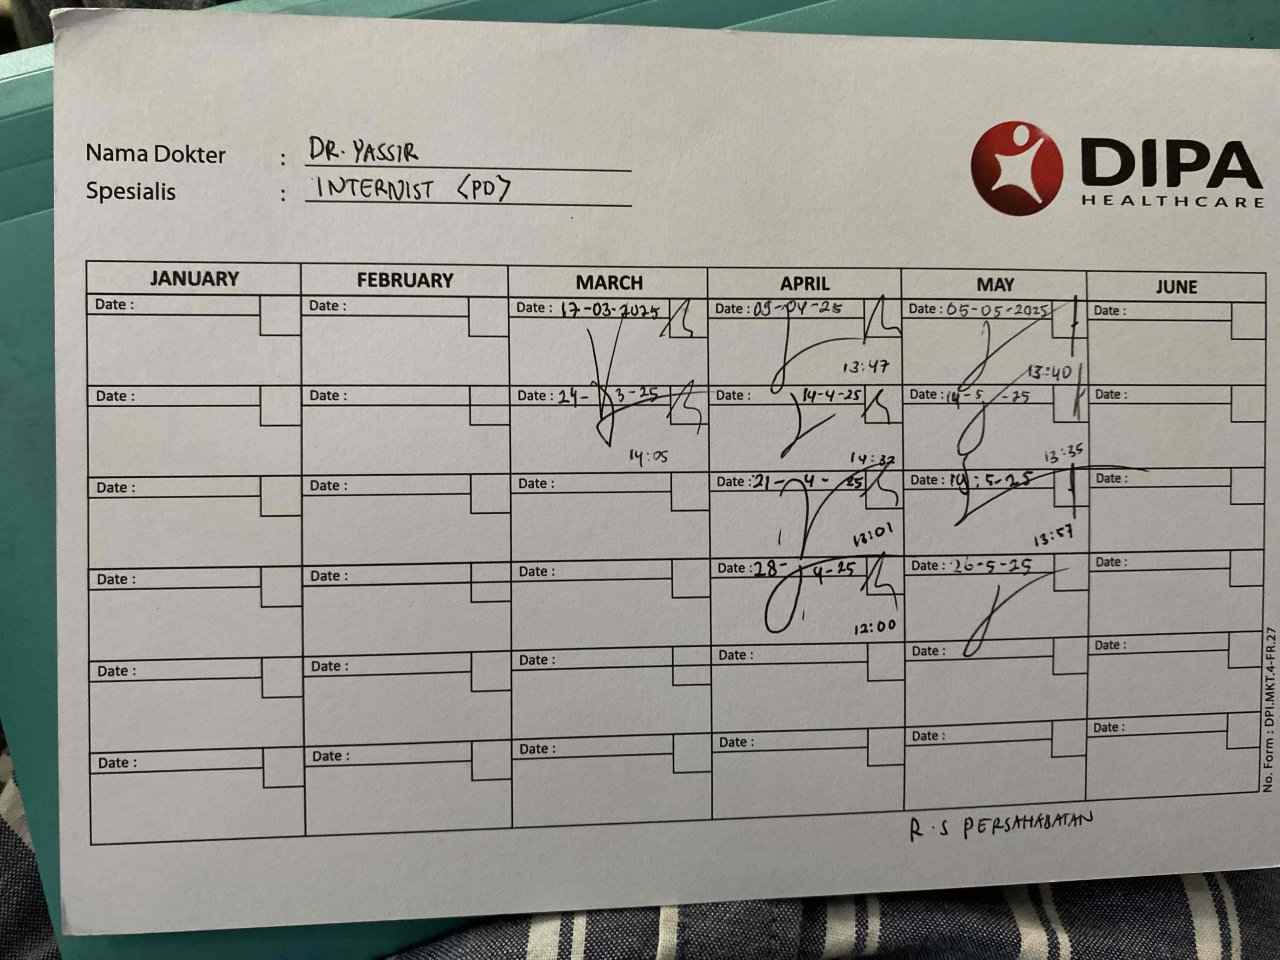 Nama Dokter : DR. YASSIR
Spesialis : INTERNIST (PD)
DIPA
HEALTHCARE
JANUARY FEBRUARY MARCH APRIL MAY JUNE
Date : Date : Date : 17-03-2025 Date : 09-04-25 Date : 05-05-2025 Date :
13:47 13:40
Date : Date : Date : 24- 3-25 Date : 14-4-25 Date : 14-5-25 Date :
14:05 14:32 13:35
Date : Date : Date : Date : 21-4-25 Date : 19-5-25 Date :
13:01 13:57
Date : Date : Date : Date : 28-4-25 Date : 26-5-25 Date :
12:00
Date : Date : Date : Date : Date : Date :
Date : Date : Date : Date : Date : Date :
R.S PERSAHABATAN
No. Form : DPI.MKT.4-FR.27